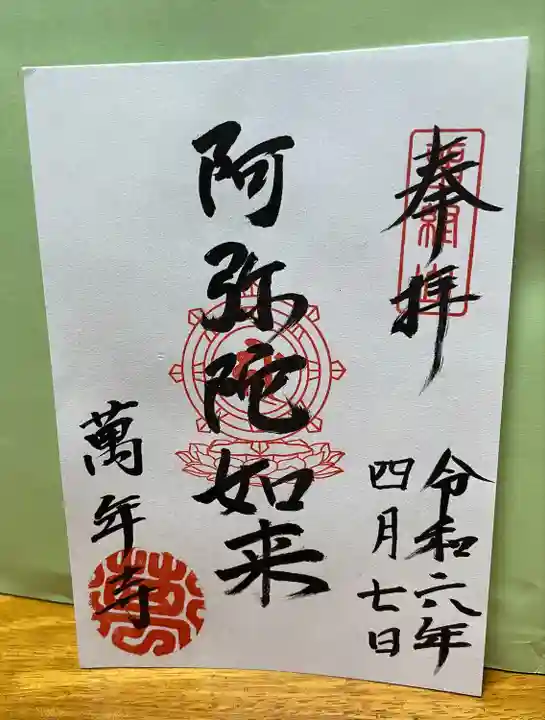 奉拝
令和六年
四月七日
阿弥陀如来
萬年寺